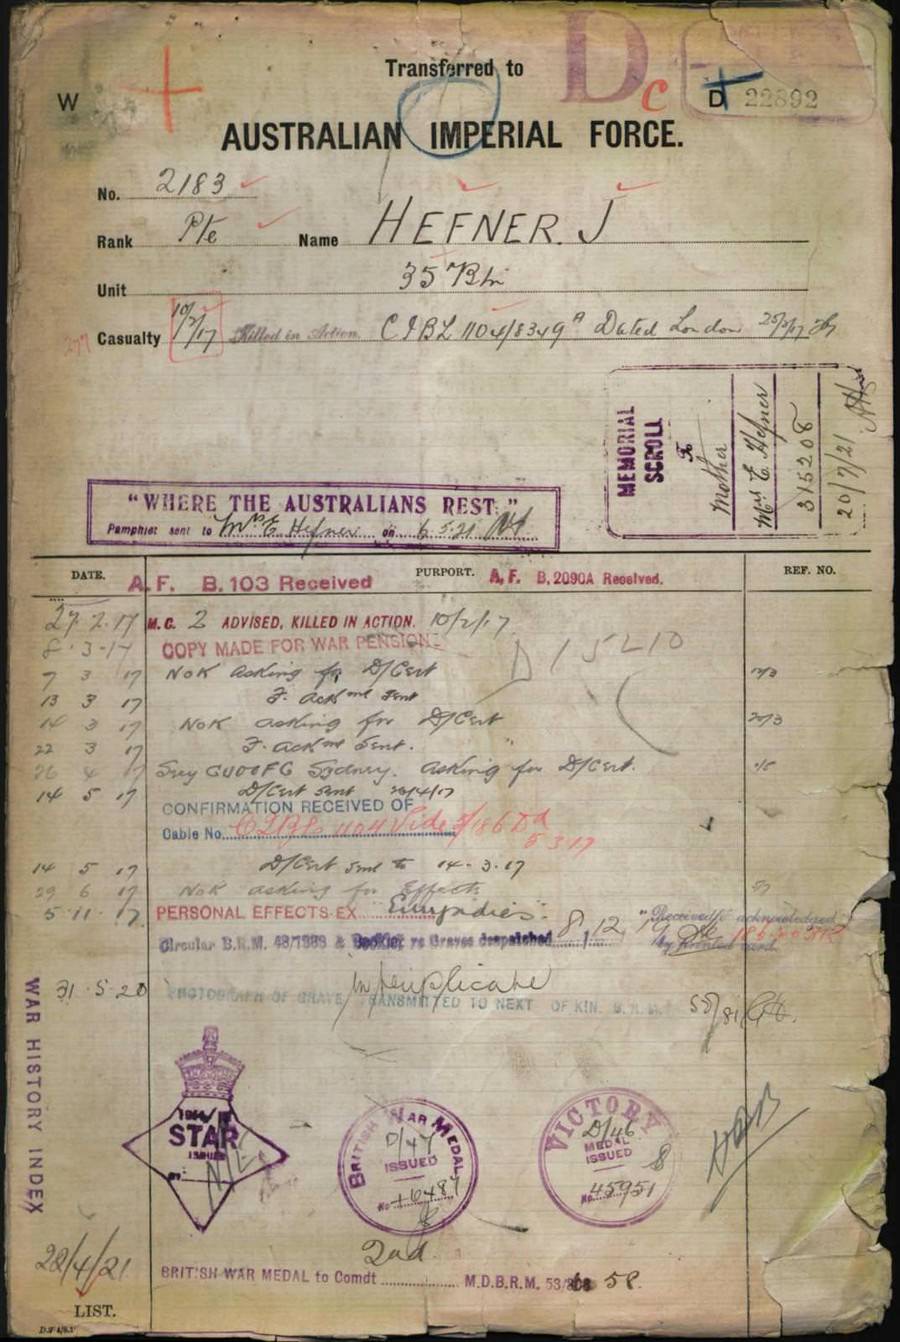 Transferred to
D c
W D 22892
AUSTRALIAN IMPERIAL FORCE.
No. 2183
Rank Pte Name HEFNER. J
Unit 35 Bn
Casualty 10/2/17 Killed in Action. CABL 1104/8349A Dated London 25/2/17
MEMORIAL
SCROLL
To
Mother
Mrs E. Hefner
315208
20/7/21
"WHERE THE AUSTRALIANS REST."
Pamphlet sent to Mrs E Hefner on 6.5.21
DATE. PURPORT. REF. NO.
A.F. B.103 Received A.F. B.2090A Received.
27.2.17 M.C. 2 ADVISED, KILLED IN ACTION. 10/2/17.
8.3.17 COPY MADE FOR WAR PENSIONS
D 15210
7 3 17 NoK asking for D/Cert
13 3 17 F. Ackmt sent
14 3 17 NoK asking for D/Cert
22 3 17 F. Ackmt sent.
26 4 17 Sydney. asking for D/Cert.
14 5 17 D/Cert sent
CONFIRMATION RECEIVED OF
Cable No. 1104 Vide
5 3 17
14 5 17 D/Cert sent to 14.3.17
29 6 17 NoK asking for Effects
5.11.17 PERSONAL EFFECTS EX Euripides.
Circular B.R.M. 48/1388 & Booklet re Graves despatched 8.12.19
"Receipt" acknowledged
by printed card.
31.5.20 in triplicate
PHOTOGRAPH OF GRAVE TRANSMITTED TO NEXT OF KIN. B.R.M.
WAR HISTORY INDEX
STAR
ISSUED
NIL
BRITISH WAR MEDAL
D/47
ISSUED
No
VICTORY
D/46
MEDAL
ISSUED
No. 45951
28/4/21 2nd
BRITISH WAR MEDAL to Comdt M.D.B.R.M. 53/ 58.
LIST.